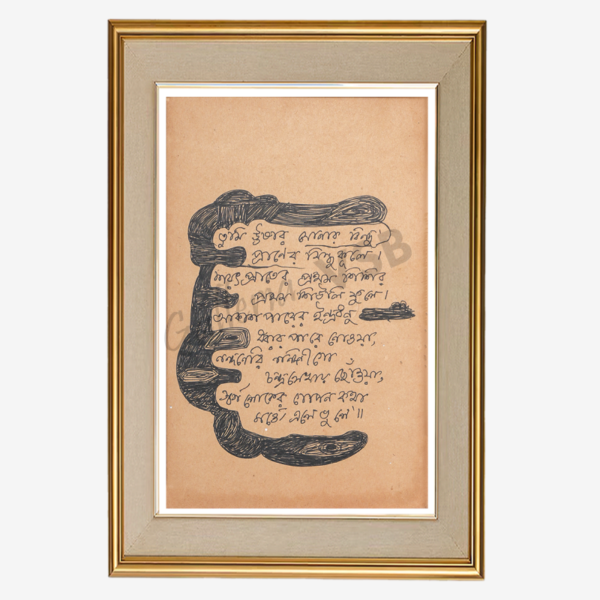 তুমি ঊষার সোনার বিন্দু
প্রাণের সিন্ধুকূলে।
শরৎপ্রাতের প্রথম শিশির
প্রথম শিউলি ফুলে।
আকাশ পারের ইন্দ্রধনু
ধরার পারে নোওয়া,
নন্দনেরি নন্দিনী গো
চন্দ্রলেখায় ছোঁওয়া,
স্বর্গলোকের গোপন কথা
মর্ত্যে এলে ভুলে॥
VSB